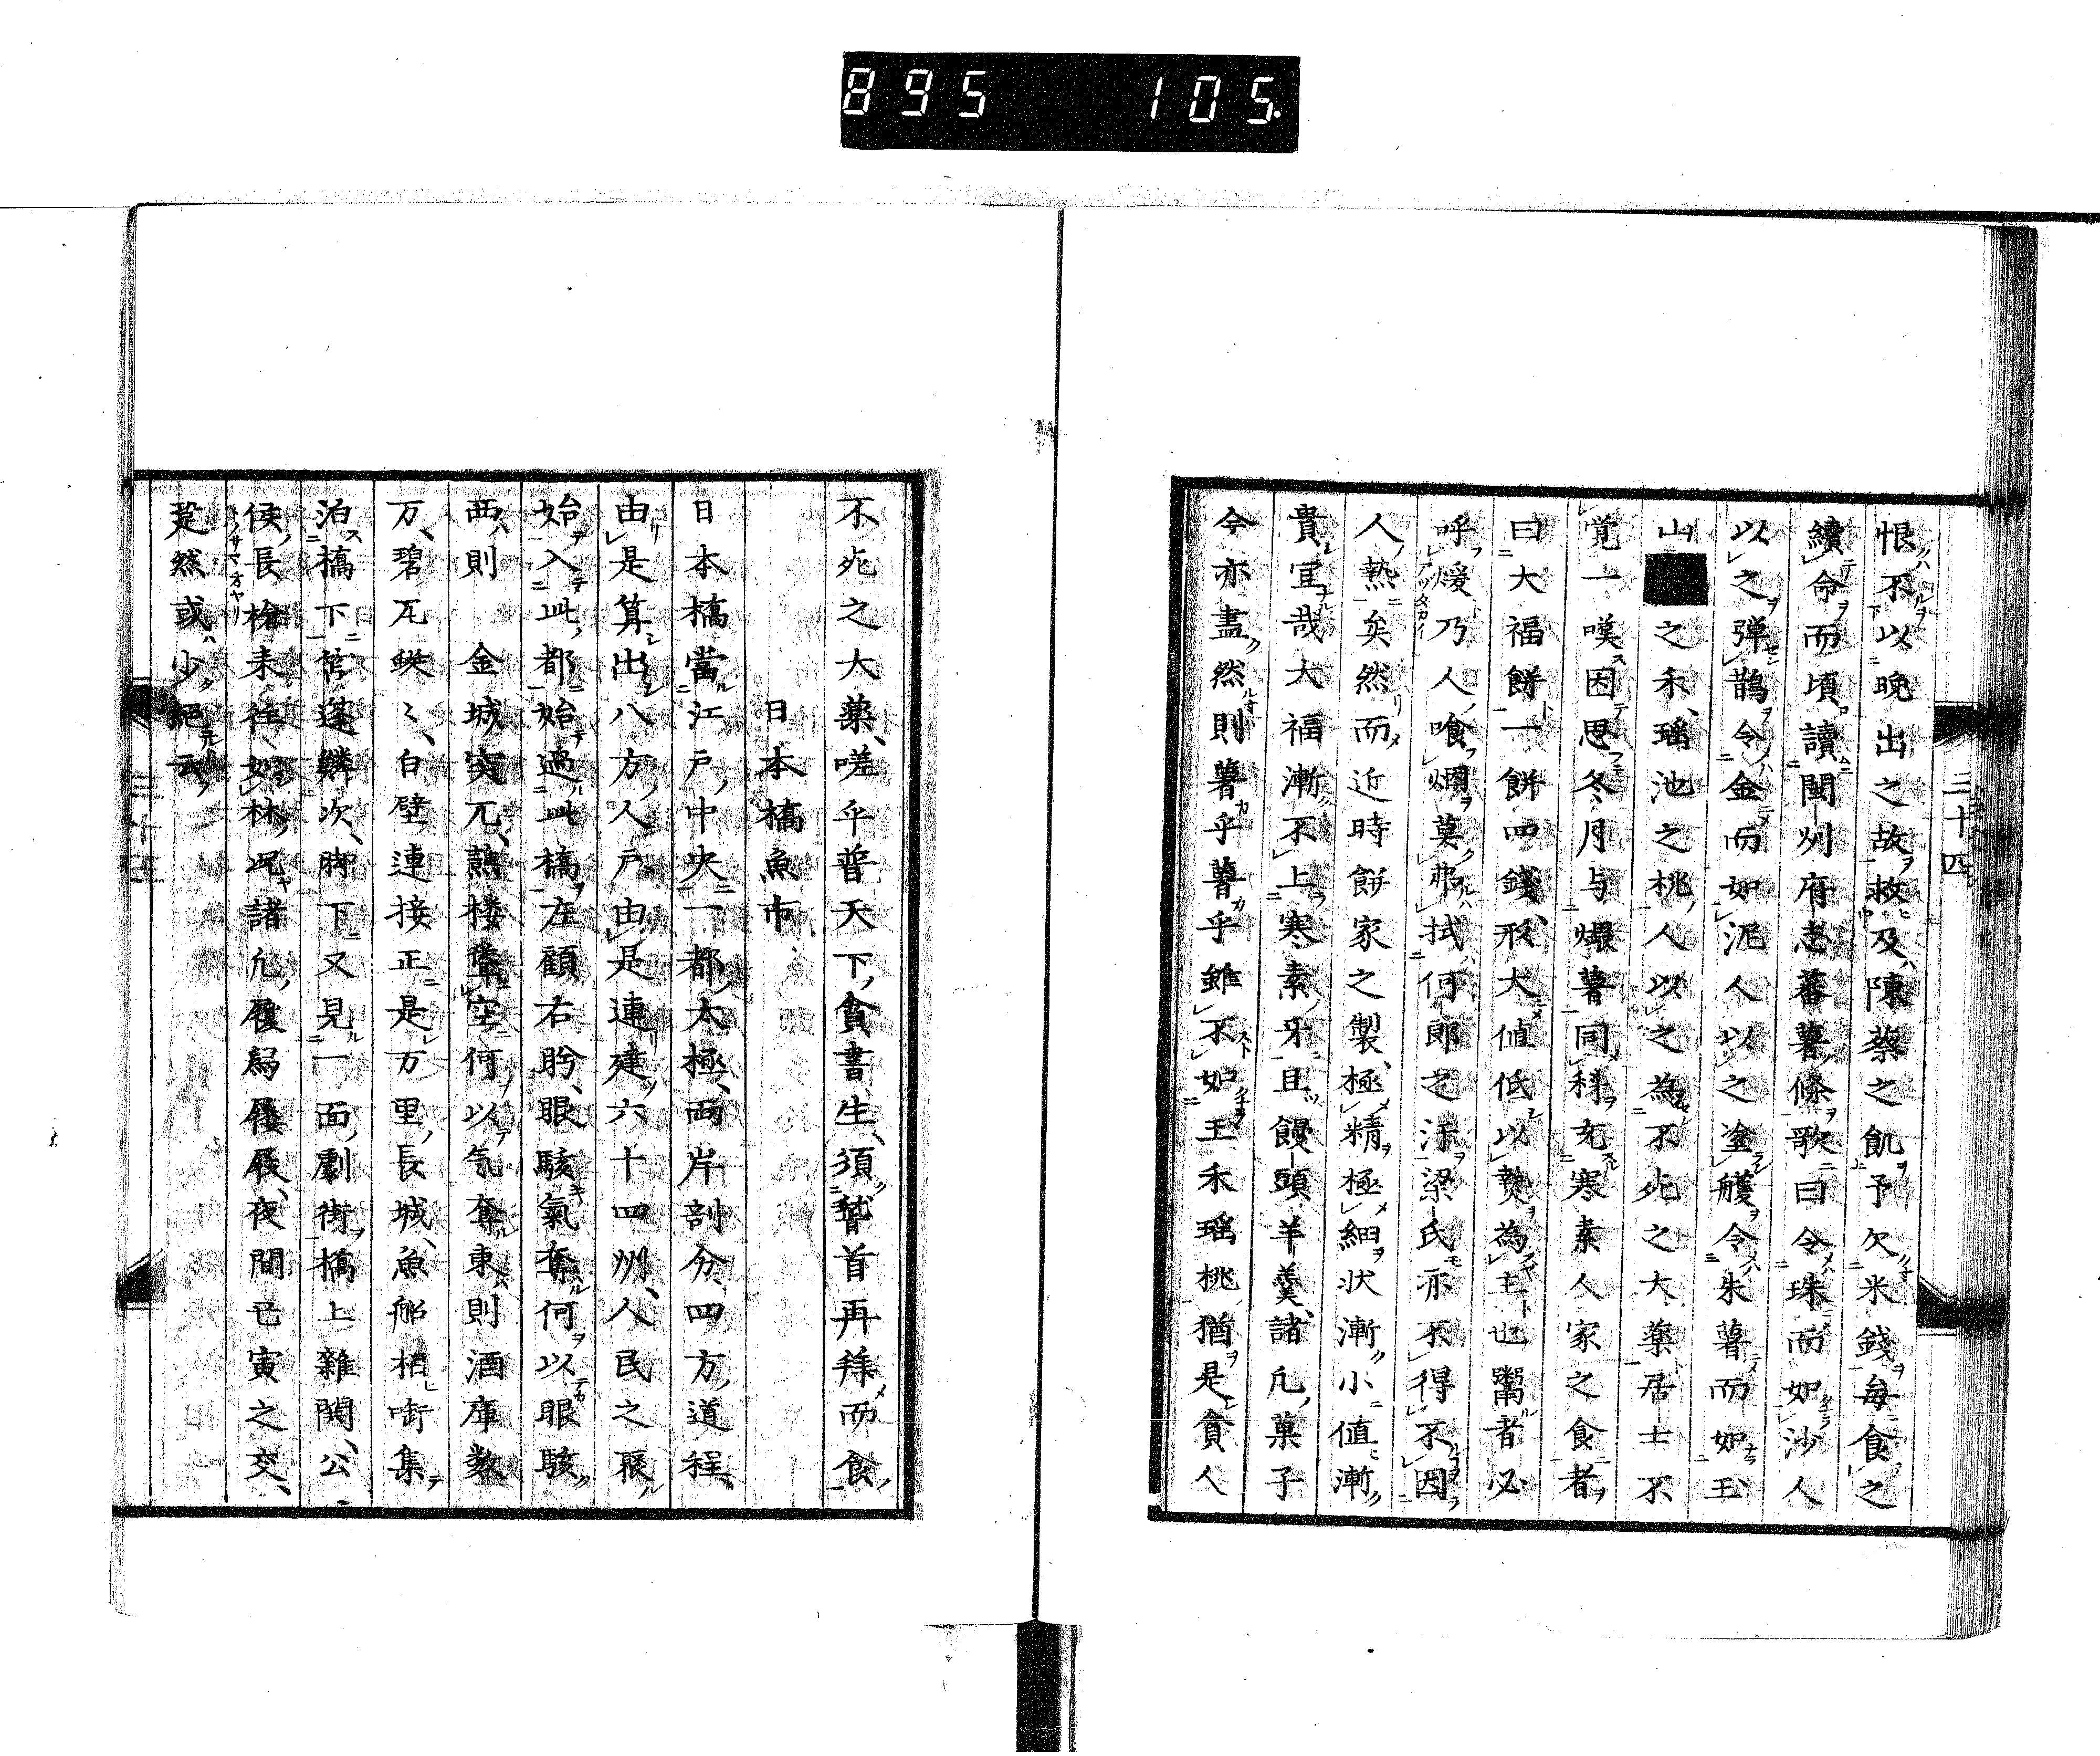 895 105
三十四
恨不以晩出之故救及陳蔡之飢予欠米錢毎食之
續命而頃讀閩州府志蕃薯條歌曰令珠而如沙人
以之弾鵲令金而如泥人以之塗艧令朱薯而如玉
山之禾瑶池之桃人以之為不死之大薬居士不
覚一嘆因思冬月与煨薯同利充寒素人家之食者
曰大福餅一餅四錢形大値低以贄為主也鬻者必
呼煖乃人喰烟莫弗拭何郎之汗梁氏亦不得不因
人熱矣然而近時餅家之製極精極細状漸小値漸
貴宜哉大福漸不上寒素牙且饅頭羊羹諸凡菓子
今亦盡然則薯乎薯乎雖不如玉禾瑶桃猶是貧人
不死之大薬嗟乎普天下貧書生須稽首再拜而食
日本橋魚市
日本橋當江戸中央一都太極両岸剖分四方道程
由是算出八方人戸由是連建六十四州人民之聚
始入此都始過此橋左顧右眄眼駭氣奪何以眼駭
西則 金城突兀熊楼聳空何以気奪東則酒庫数
万碧瓦映々白壁連接正是万里長城魚船相啣集
泊橋下舘蓬鱗次脚下又見一面劇街橋上雜閙公
侯長槍来往如林况諸凡履舄屨屐夜間丑寅之交
莫然或少絶云